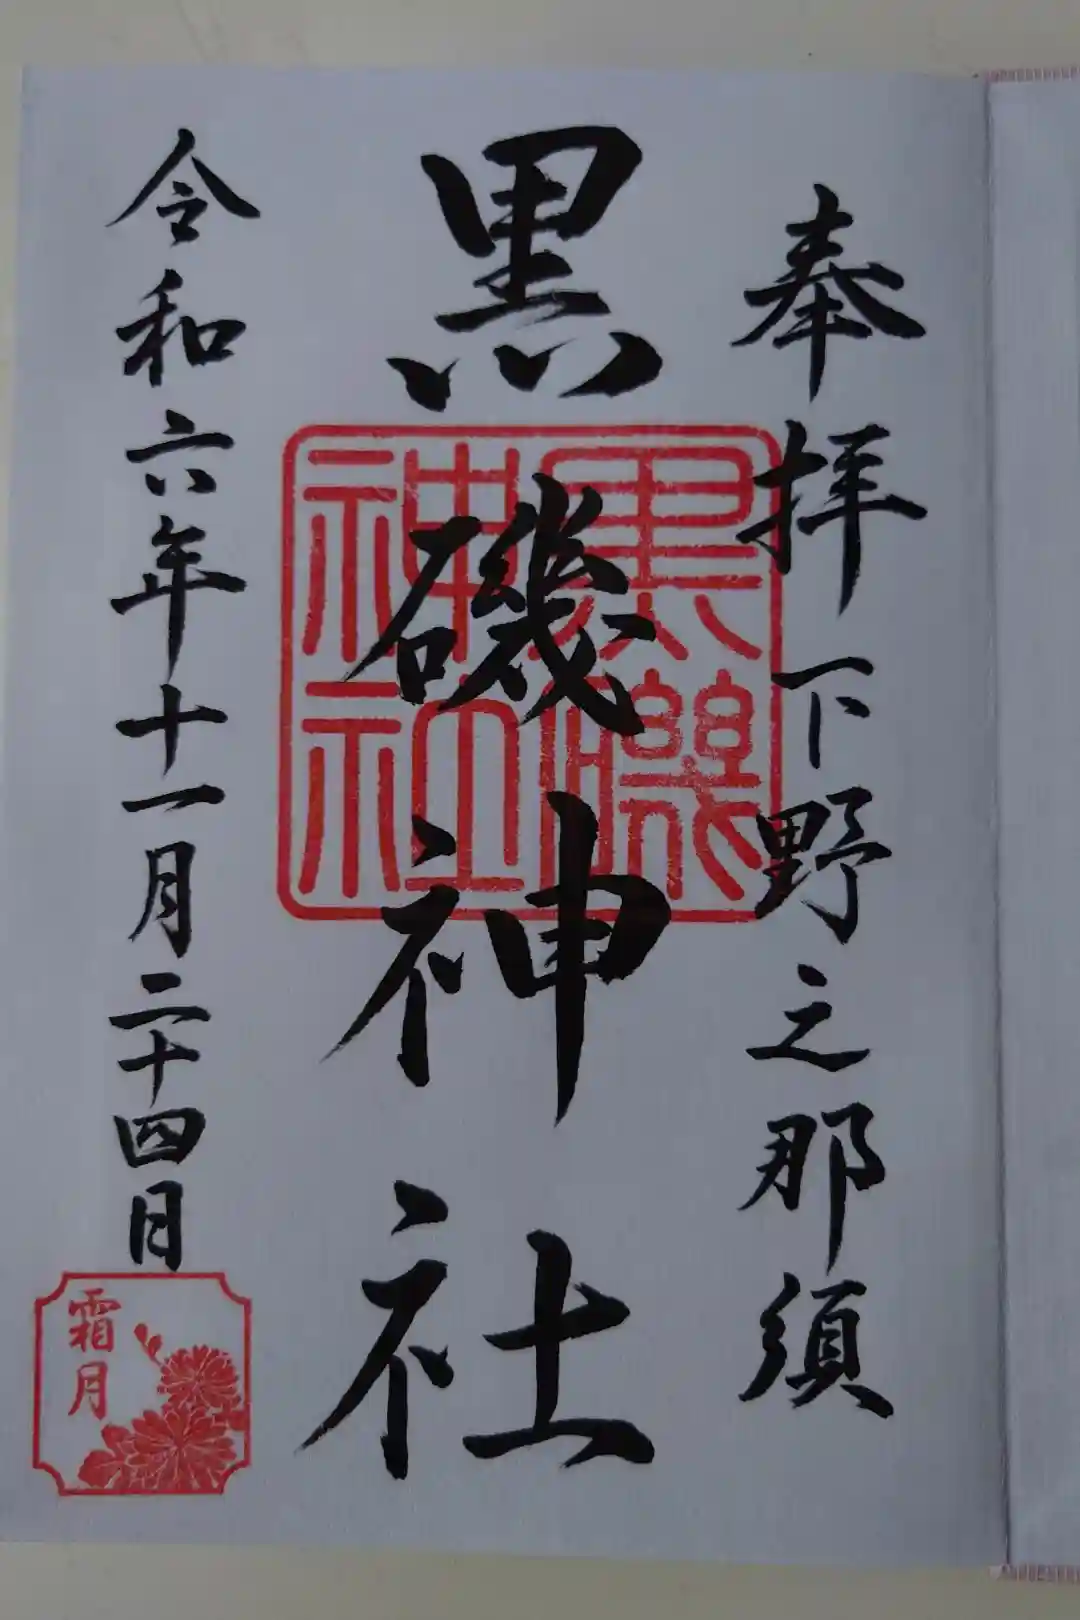 奉拝 下野之那須
黒磯神社
黒磯
神社
令和六年十一月二十四日
霜月